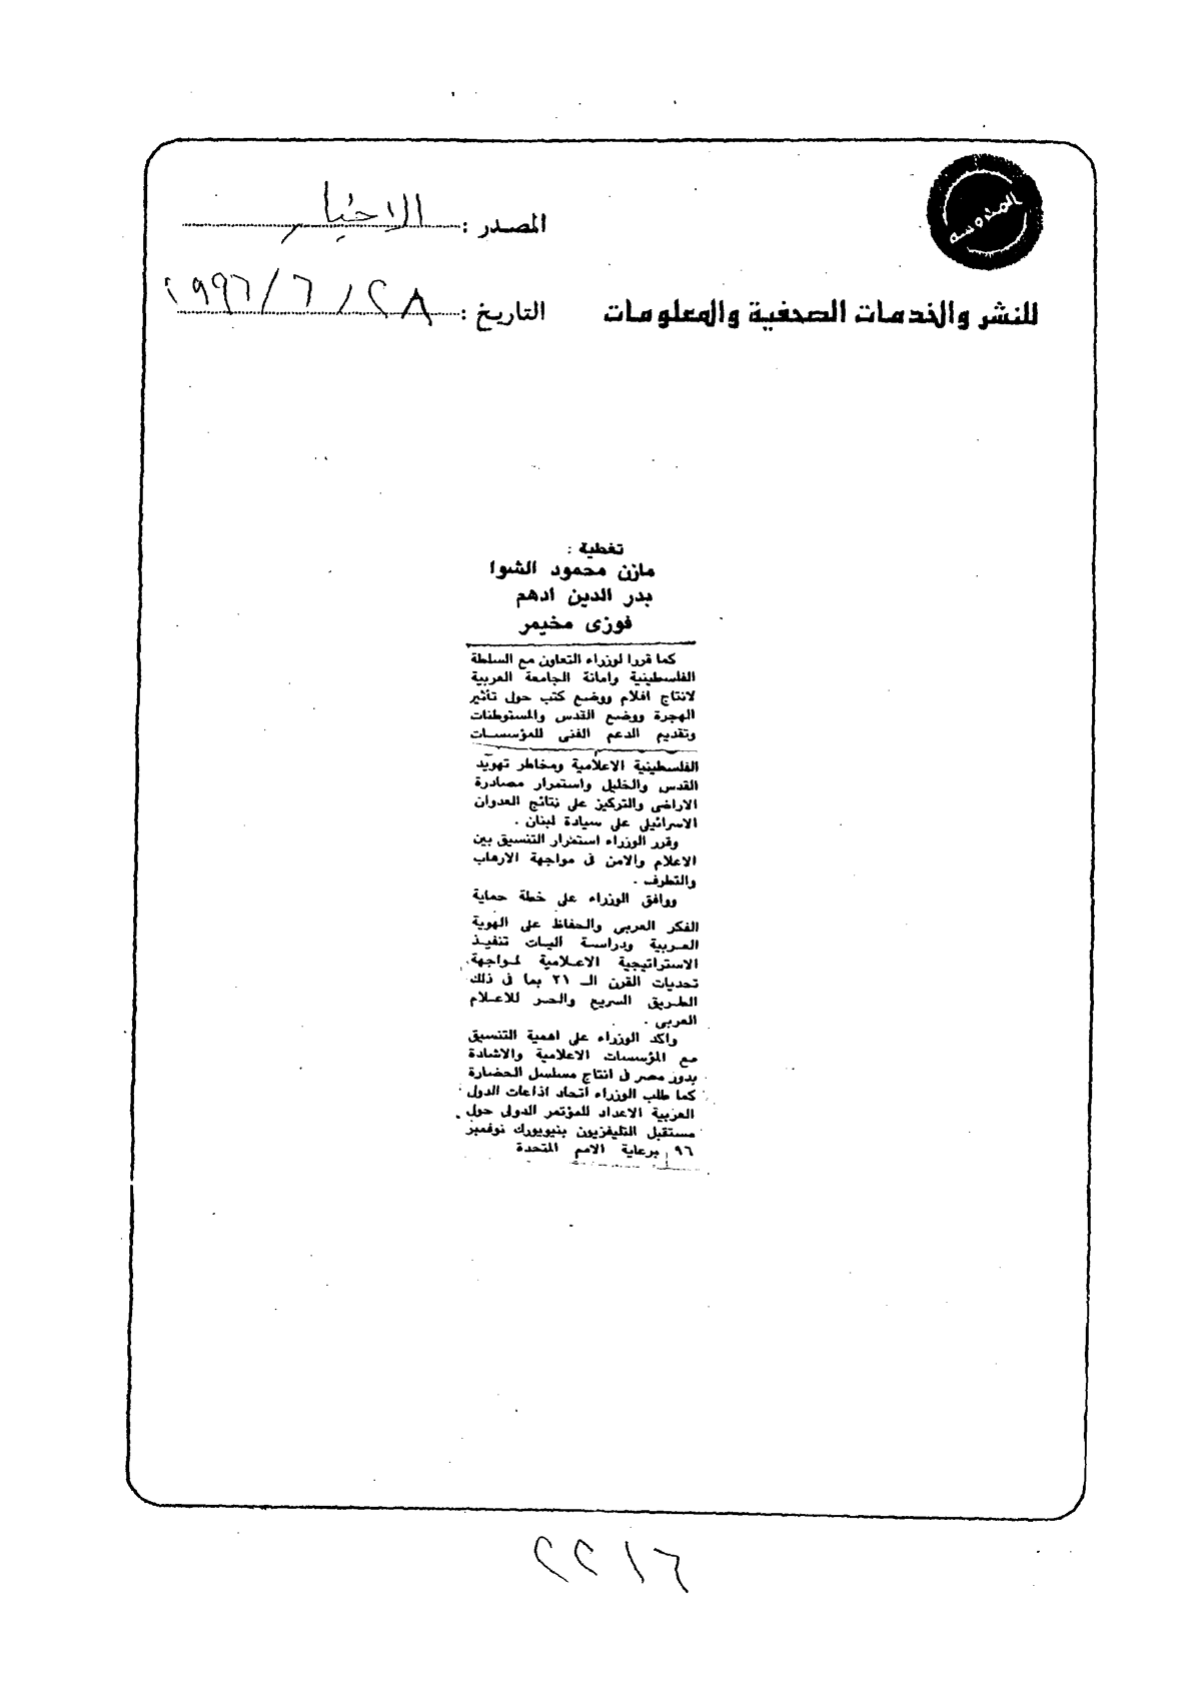 المصدر : الاخبار
التاريخ : ٢٨ / ٦ / ١٩٩٦
للنشر والخدمات الصحفية والمعلومات
تغطية :
مازن محمود الشوا
بدر الدين ادهم
فوزى مخيمر
كما قررا لوزراء التعاون مع السلطة
الفلسطينية وامانة الجامعة العربية
لانتاج افلام ووضع كتب حول تأثير
الهجرة ووضع القدس والمستوطنات
وتقديم الدعم الفنى للمؤسسات
الفلسطينية الاعلامية ومخاطر تهويد
القدس والخليل واستمرار مصادرة
الاراضى والتركيز على نتائج العدوان
الاسرائيلى على سيادة لبنان .
وقرر الوزراء استمرار التنسيق بين
الاعلام والامن فى مواجهة الارهاب
والتطرف .
ووافق الوزراء على خطة حماية
الفكر العربى والحفاظ على الهوية
العربية ودراسة اليات تنفيذ
الاستراتيجية الاعلامية لمواجهة
تحديات القرن الـ ٢١ بما فى ذلك
الطريق السريع والحر للاعلام
العربى .
واكد الوزراء على اهمية التنسيق
مع المؤسسات الاعلامية والاشادة
بدور مصر فى انتاج مسلسل الحضارة
كما طلب الوزراء اتحاد اذاعات الدول
العربية الاعداد للمؤتمر الدولى حول
مستقبل التليفزيون بنيويورك نوفمبر
٩٦ برعاية الامم المتحدة
٢٢١٦